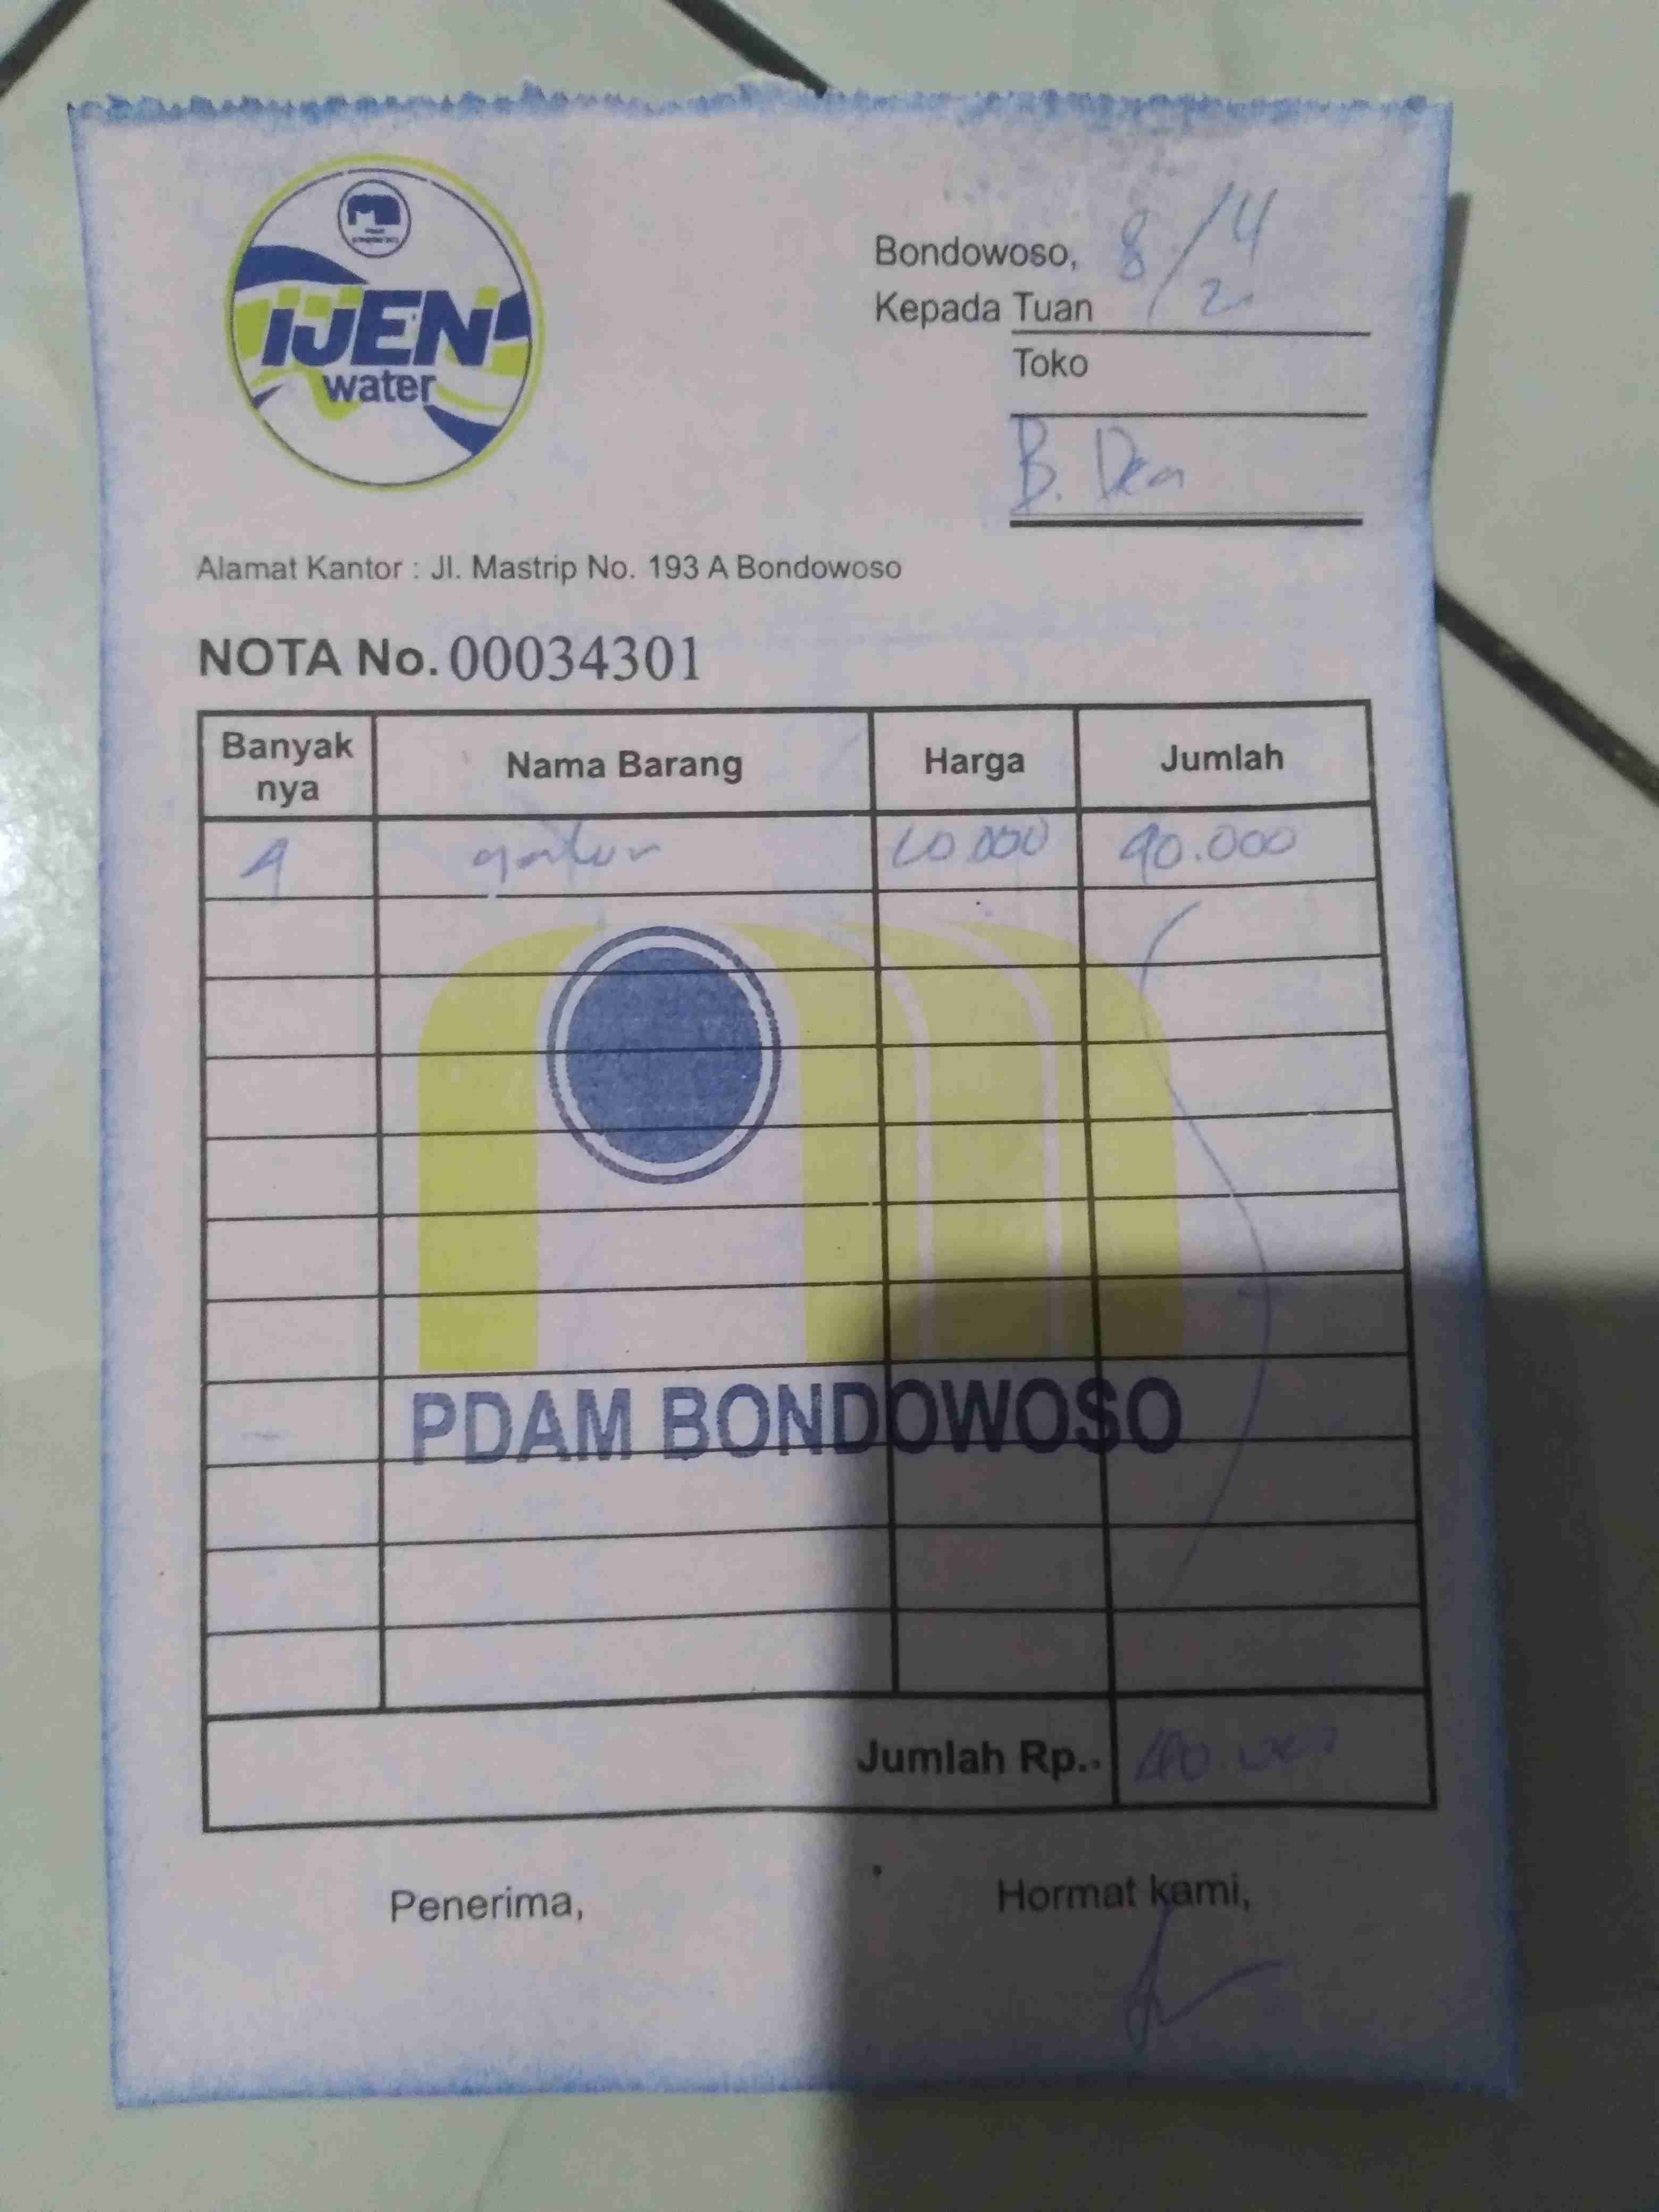 IJEN
water
Bondowoso, 8/4
Kepada Tuan 2
Toko
B. Dea
Alamat Kantor : Jl. Mastrip No. 193 A Bondowoso
NOTA No. 00034301
Banyak nya Nama Barang Harga Jumlah
4 galon 10.000 40.000
PDAM BONDOWOSO
Jumlah Rp.- 40.000
Penerima, Hormat kami,